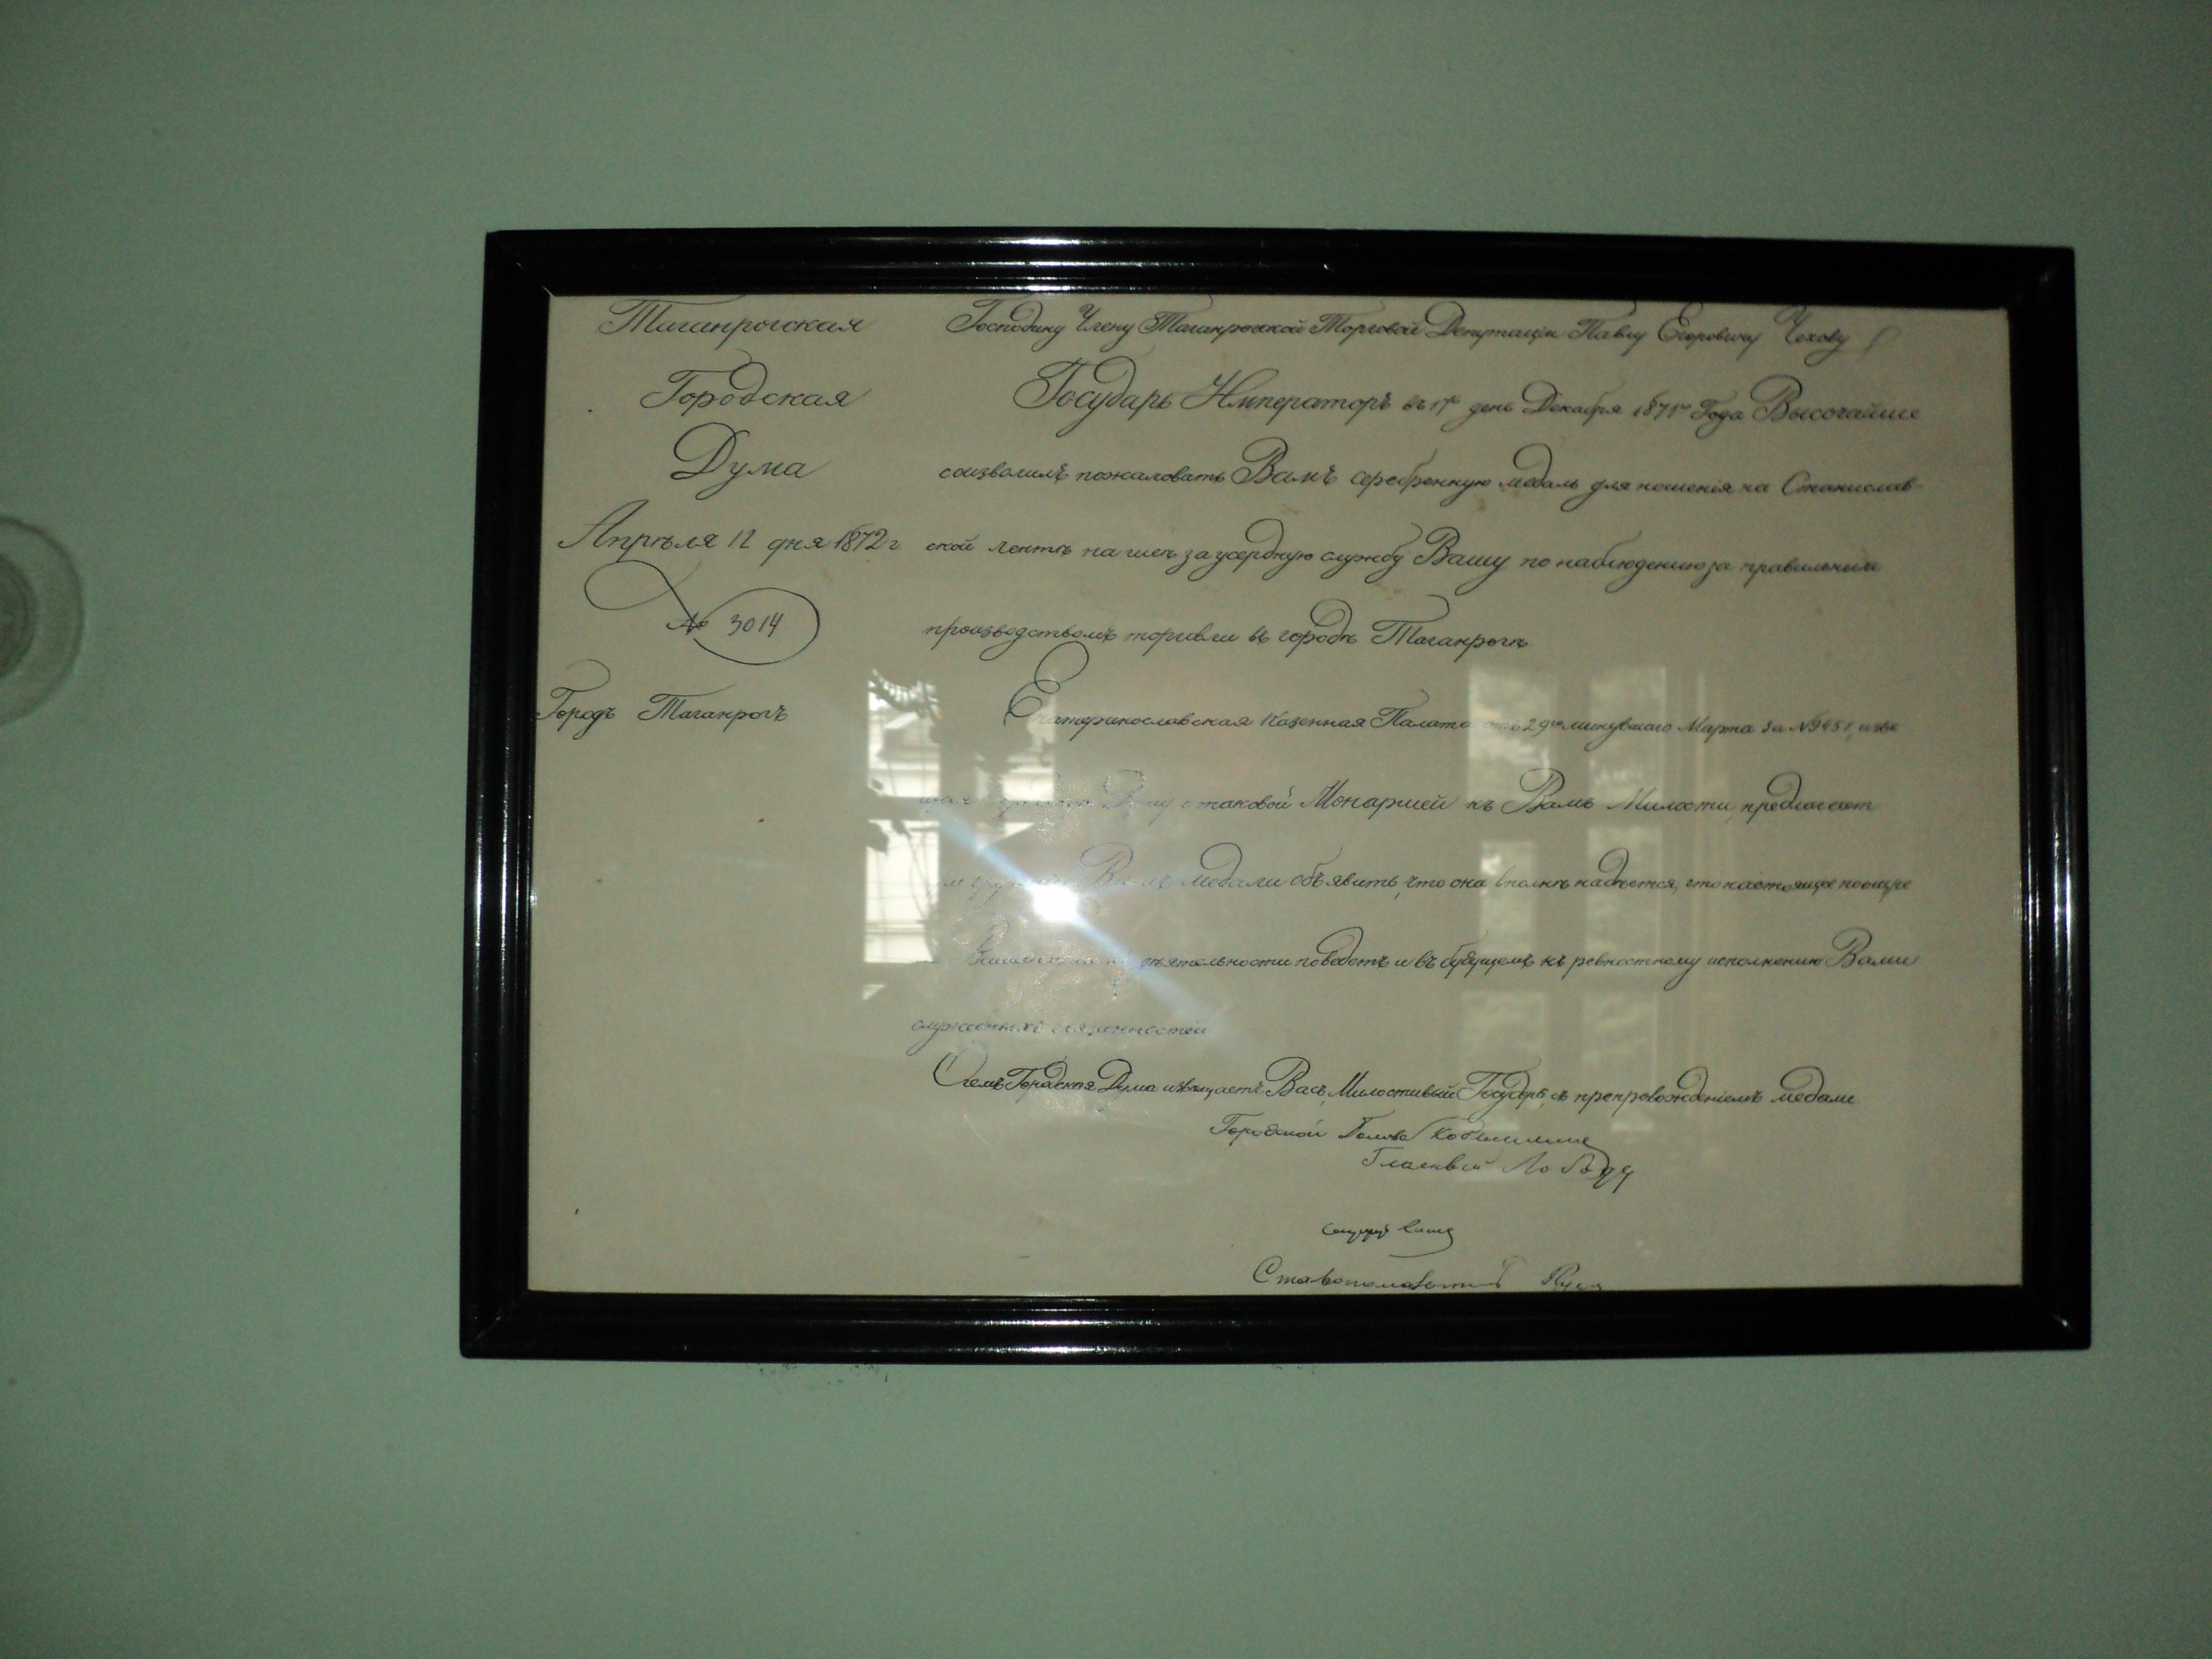 Таганрогская
Городская
Дума
Апрѣля 12 дня 1872 г
№ 3014
Городъ Таганрогъ
Господину Члену Таганрогской Торговой Депутаціи Павлу Егоровичу Чехову
Государь Императоръ въ 17 день Декабря 1871 Года Высочайше
соизволилъ пожаловать Вамъ серебренную медаль для ношенія на Станислав
ской лентѣ на шеѣ за усердную службу Вашу по наблюденію за правильнымъ
производствомъ торговли въ городѣ Таганрогѣ
Екатеринославская Казенная Палата отъ 29го минувшаго Марта за № извѣ
щая Думу о таковой Монаршей къ Вамъ Милости, предлагает
Вамъ медали объявить, что она вполнѣ надѣется, что настоящее поощре
дѣятельности поведетъ и въ будущемъ къ ревностному исполненію Вами
служебныхъ обязанностей
О чемъ Городская Дума извѣщаетъ Васъ, Милостивый Государь, съ препровожденіемъ медали
Городской Голова
Гласный Лобода